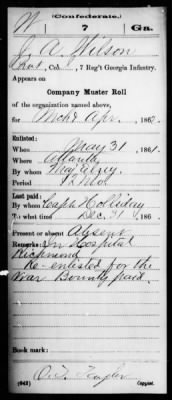 (Confederate.)
W 7 Ga.
J. A. Wilson
Co. , 7 Reg't Georgia Infantry.
Appears on
Company Muster Roll
of the organization named above,
for Mch & Apr, 186
Enlisted:
When May 31, 1861.
Where Atlanta
By whom Maj
Period 12 Mos
Last paid:
By whom Capt Holliday
To what time Dec 31, 186
Present or absent Absent
Remarks: In Hospital
Richmond
Re-enlisted for the
War Bounty paid.
Book mark:
(642) Copyist.